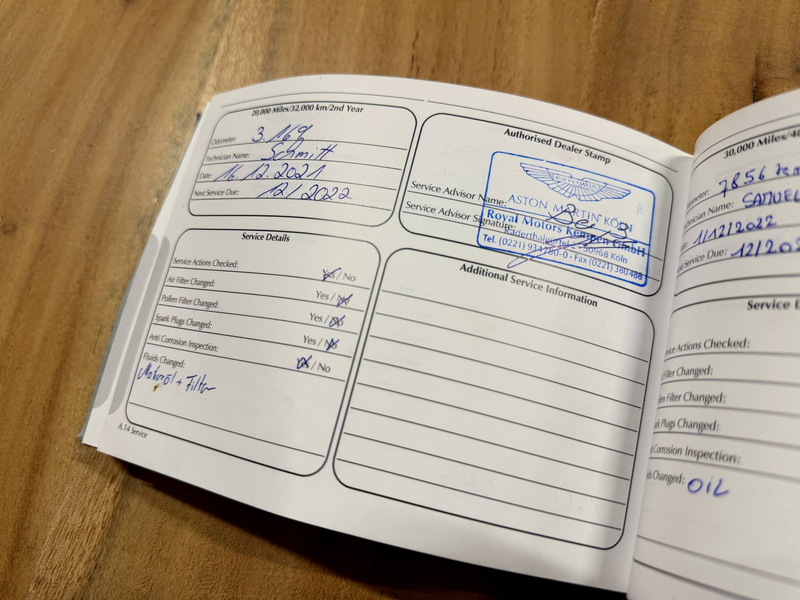 20,000 Miles/32,000 km/2nd Year
Odometer: 3.169
Technician Name: Schmitt
Date: 16.12.2021
Next Service Due: 12/2022
Authorised Dealer Stamp
ASTON MARTIN
Service Advisor Name:
Service Advisor Signature:
ASTON MARTIN KÖLN
Royal Motors Kempen GmbH
Raderthalgürtel 2 - 50968 Köln
Tel. (0221) 934780-0 · Fax (0221) 380488
Service Details
Service Actions Checked: Yes / No
Air Filter Changed: Yes / No
Pollen Filter Changed: Yes / No
Spark Plugs Changed: Yes / No
Anti Corrosion Inspection: Yes / No
Fluids Changed: Yes / No
Motoröl + Filter
Additional Service Information
A.14 Service
30,000 Miles/4
ometer: 7856 km
nician Name: SAMUEL
1/12/2022
Next Service Due: 12/202
Service D
ice Actions Checked:
Filter Changed:
llen Filter Changed:
ark Plugs Changed:
Corrosion Inspection:
ds Changed: OIL